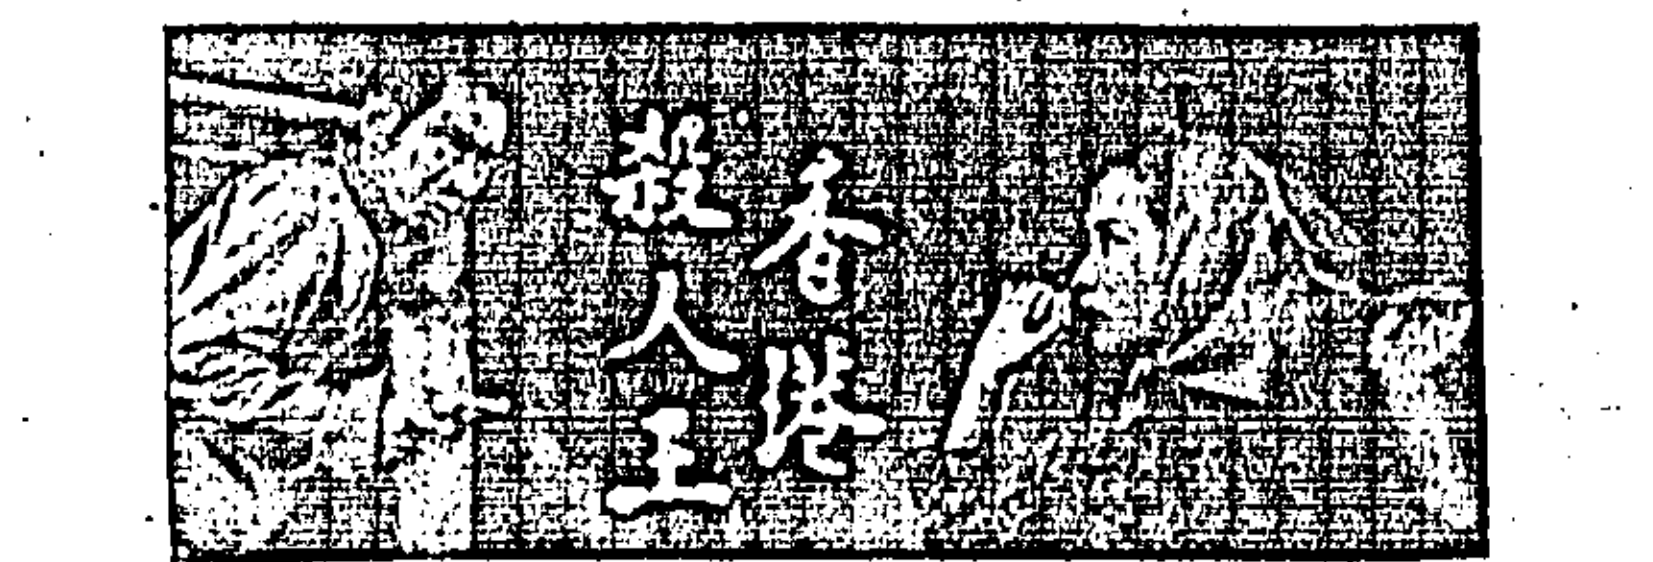 香港
殺人王